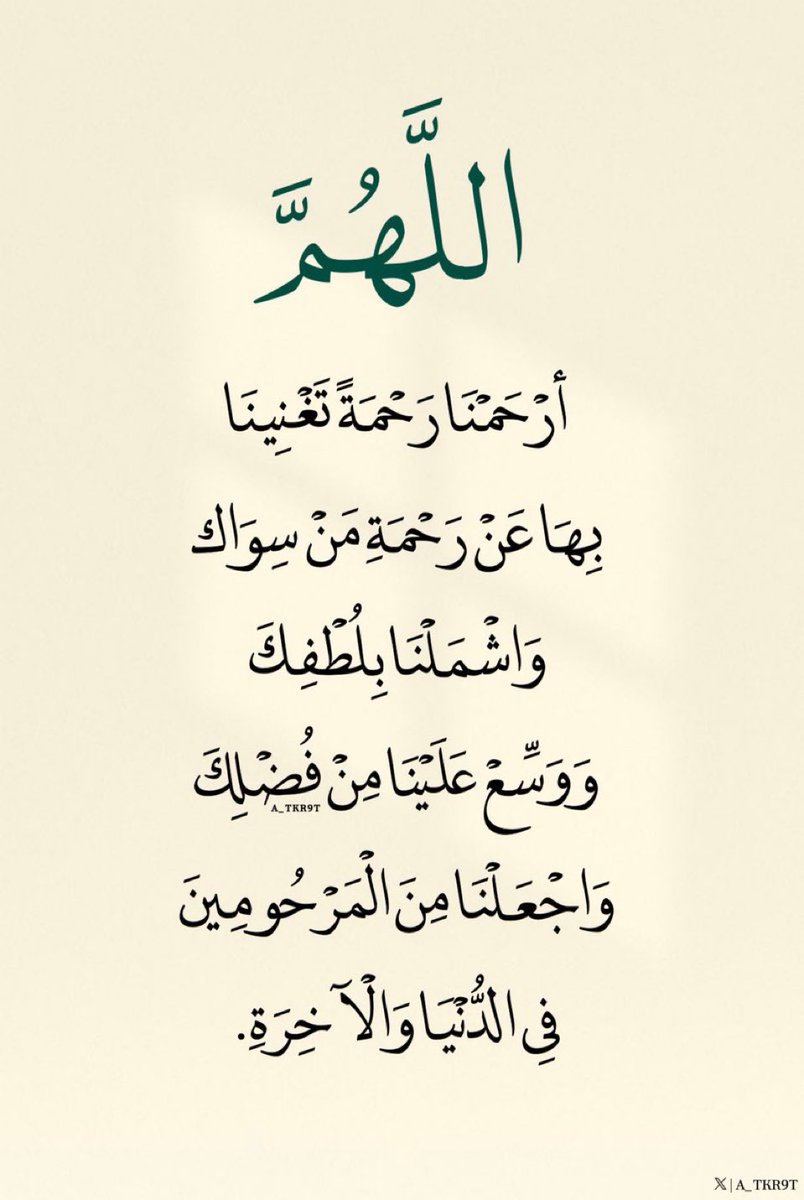 اللَّهُمَّ
أرْحَمْنَا رَحْمَةً تَغْنِينَا
بِهَا عَنْ رَحْمَةِ مَنْ سِوَاك
وَاشْمَلْنَا بِلُطْفِكَ
وَوَسِّعْ عَلَيْنَا مِنْ فُضْلِكَ
A_TKR9T
وَاجْعَلْنَا مِنَ الْمَرْحُومِينَ
فِي الدُّنْيَا وَالْآخِرَةِ.
𝕏 | A_TKR9T